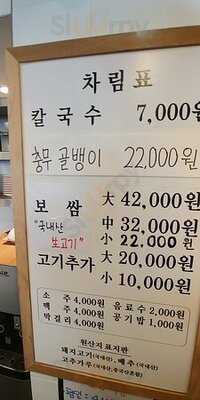 차림표
칼국수 7,000원
충무 골뱅이 22,000원
보쌈 大 42,000원
"국내산 中 32,000원
生고기" 小 22,000원
고기추가 大 20,000원
小 10,000원
소주 4,000원 음료수 2,000원
맥주 4,000원 공기밥 1,000원
막걸리 4,000원
원산지표지판
돼지고기(국내산), 배추(국내산)
고추가루(국내산,중국산혼합)